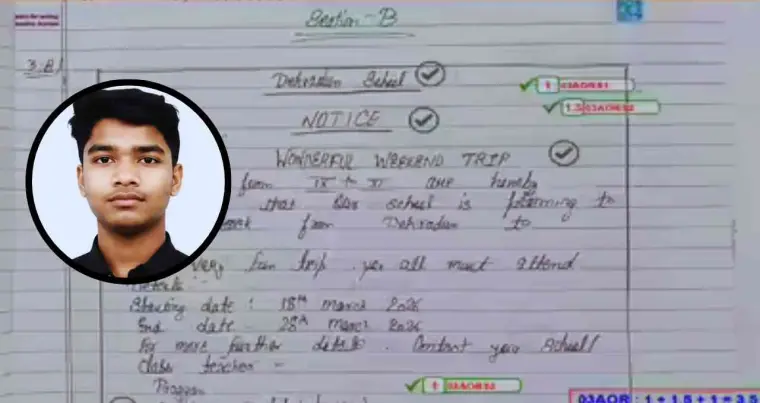 Section - B
3.B)
Dehradun School
1 03AOR81
NOTICE
1.5 03AOR82
WONDERFUL WEEKEND TRIP
from IX to XI are hereby
that our school is planning to
from Dehradun to
very fun trip. you all must attend
Starting date : 18th march 2026
End date - 28th march 2026
for more further details . Contact your School/
class teacher -
1
03AOR : 1 + 1.5 + 1 = 3.5